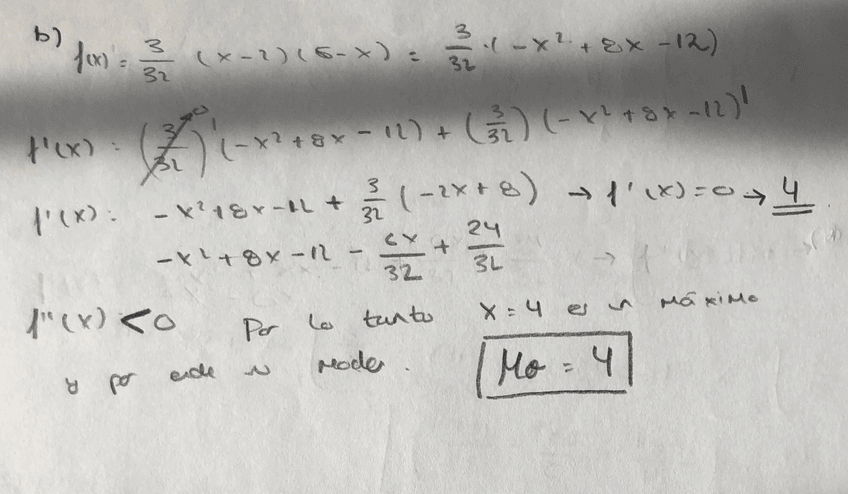 b) f(x) = 3/32 (x-2)(6-x) = 3/32 · (-x² + 8x - 12)
f'(x) = (3/32)'⁰ (-x² + 8x - 12) + (3/32) (-x² + 8x - 12)'
f'(x) = -x² + 8x - 12 + 3/32 (-2x + 8) → f'(x) = 0 → 4
-x² + 8x - 12 - 6x/32 + 24/32
f''(x) < 0 Por lo tanto x = 4 es un máximo
y por ende su moda.
Mo = 4